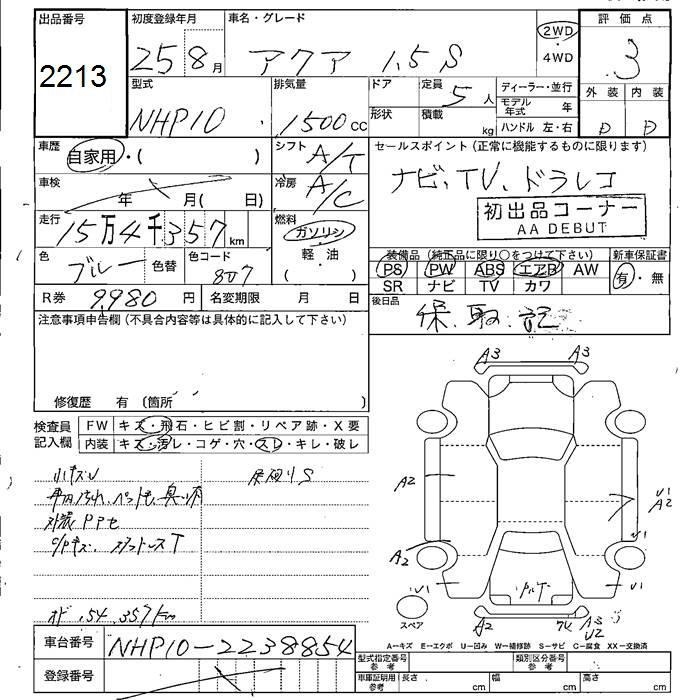 出品番号 初度登録年月 車名・グレード 評価点
2213 25 8月 アクア 1.5 S 2WD・4WD 3
外装 内装
D D
型式 排気量 ドア 定員 ディーラー・並行
NHP10 1500cc 5人 モデル年式 年
形状 積載 kg ハンドル 左・右
車歴 自家用・( ) シフト A/T セールスポイント (正常に機能するものに限ります)
車検 年 月( 日) 冷房 A/C ナビ、TV、ドラレコ
初出品コーナー
AA DEBUT
走行 15万4千357km 燃料 ガソリン
軽・油
( )
色 ブルー 色替 色コード 8D7
装備品 (純正品に限り○をつけて下さい) 新車保証書
PS PW ABS エアB AW 有・無
SR ナビ TV カワ
R券 9,980円 名変期限 月 日
後日品 保.取.記
注意事項申告欄 (不具合内容等は具体的に記入して下さい)
修復歴 有 (箇所 )
検査員記入欄 FW キズ・飛石・ヒビ割・リペア跡・X要
内装 キズ・汚レ・コゲ・穴・スレ・キレ・破レ
A3 A3
A2
U1
A2
A2 U1
U1 U1
小キズU
外装PPセ
オド 154.357km
スペア
A2
U2
A−キズ E−エクボ U−凹み W−補修跡 S−サビ C−腐食 XX−交換済
車台番号 NHP10-2238854
登録番号
型式指定番号 参考 類別区分番号 参考
車庫証明用 参考 長さ cm 幅 cm 高さ cm